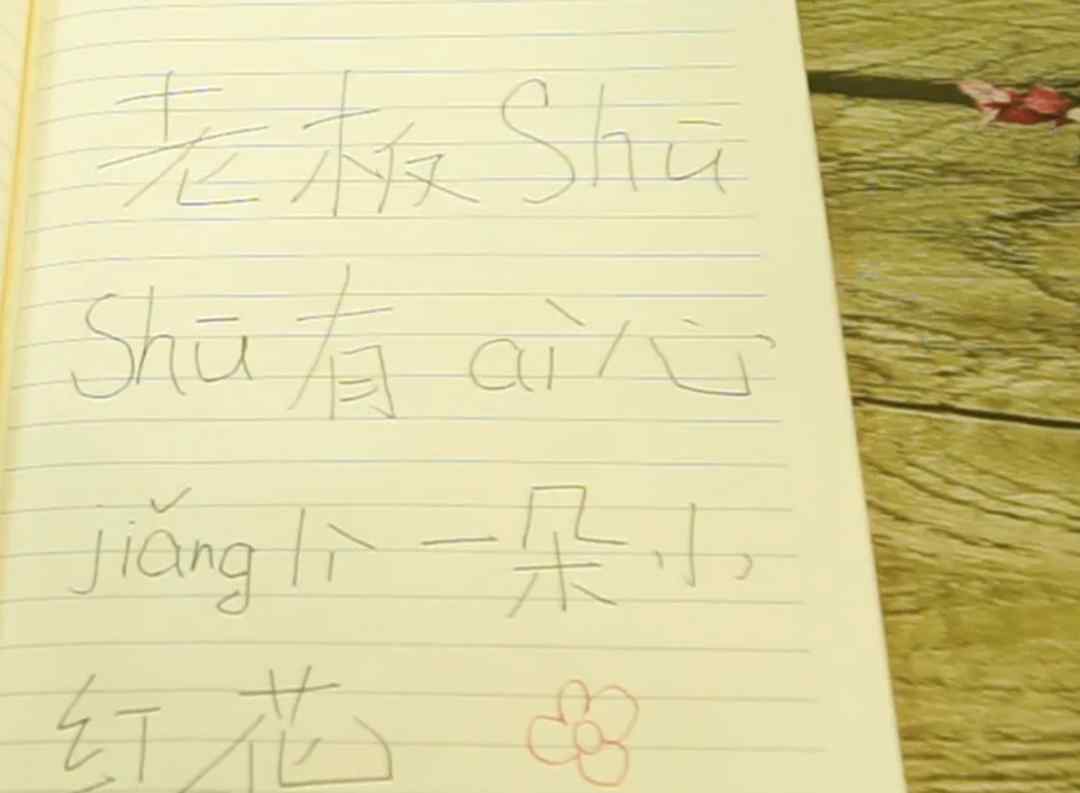 老板Shū
Shū有ài心
jiǎnglì一朵小
红花